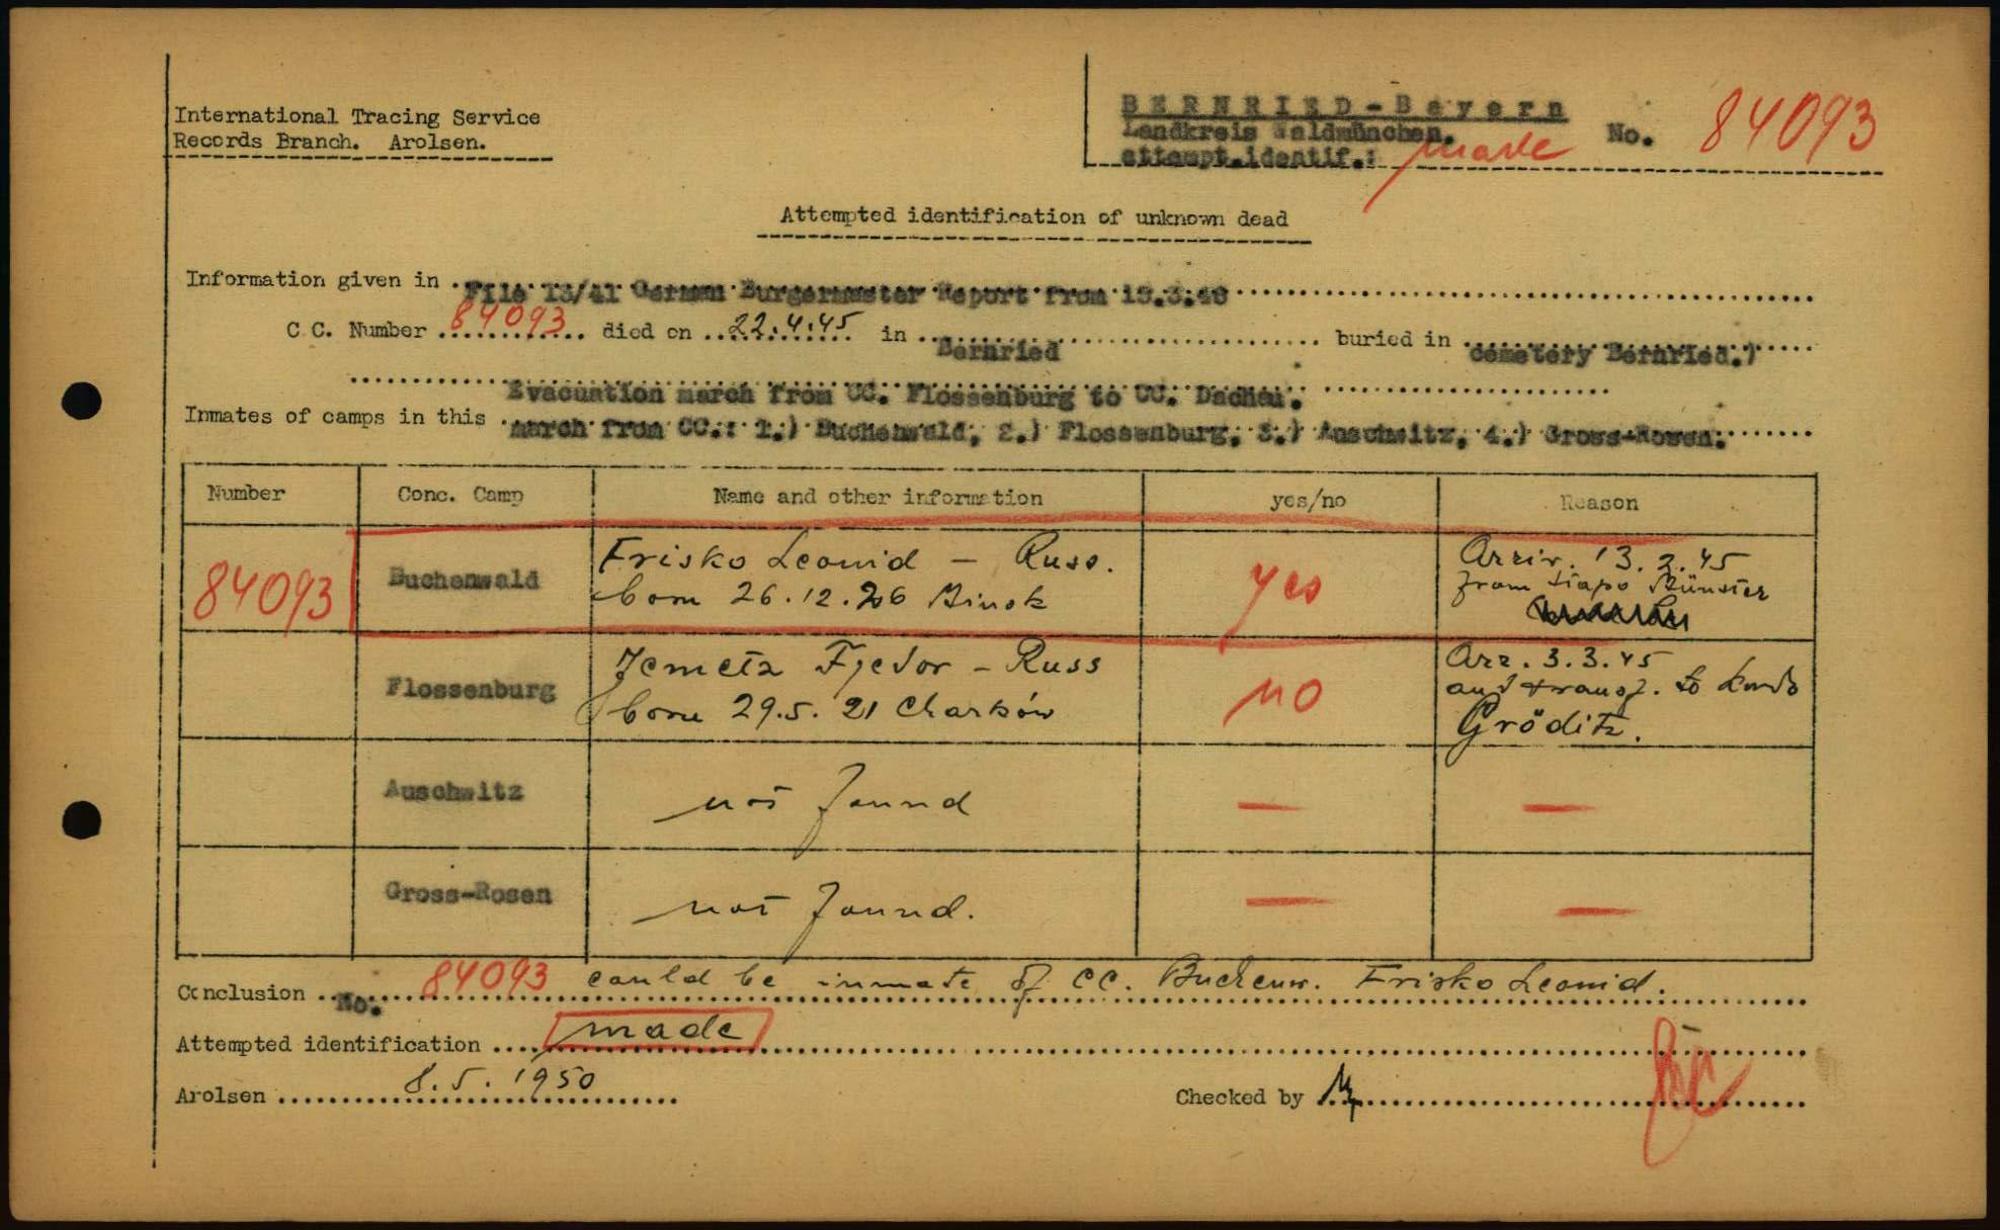 International Tracing Service
Records Branch. Arolsen.
BERNRIED-Bayern
Landkreis Waldmünchen.
attempt.identif.: made No. 84093
Attempted identification of unknown dead
Information given in File 13/41 German Burgermaster Report from
C.C. Number 84093 died on 22.4.45 in Bernried buried in cemetery Bernried.)
Evacuation march from CC. Flossenburg to CC. Dachau.
Inmates of camps in this march from CC.: 1.) Buchenwald, 2.) Flossenburg, 3.) Auschwitz, 4.) Gross-Rosen.
Number Conc. Camp Name and other information yes/no Reason
84093 Buchenwald Frisko Leonid - Russ. yes Arriv. 13.2.45
born 26.12.26 from Stapo Münster
Flossenburg Jemetz Fjedor - Russ no Arr. 3.3.45
born 29.5.21 Charków and transf. to Kmdo
Gröditz.
Auschwitz not found — —
Gross-Rosen not found. — —
Conclusion No. 84093 could be inmate of CC. Buchenw. Frisko Leonid.
Attempted identification made
Arolsen 8.5.1950 Checked by